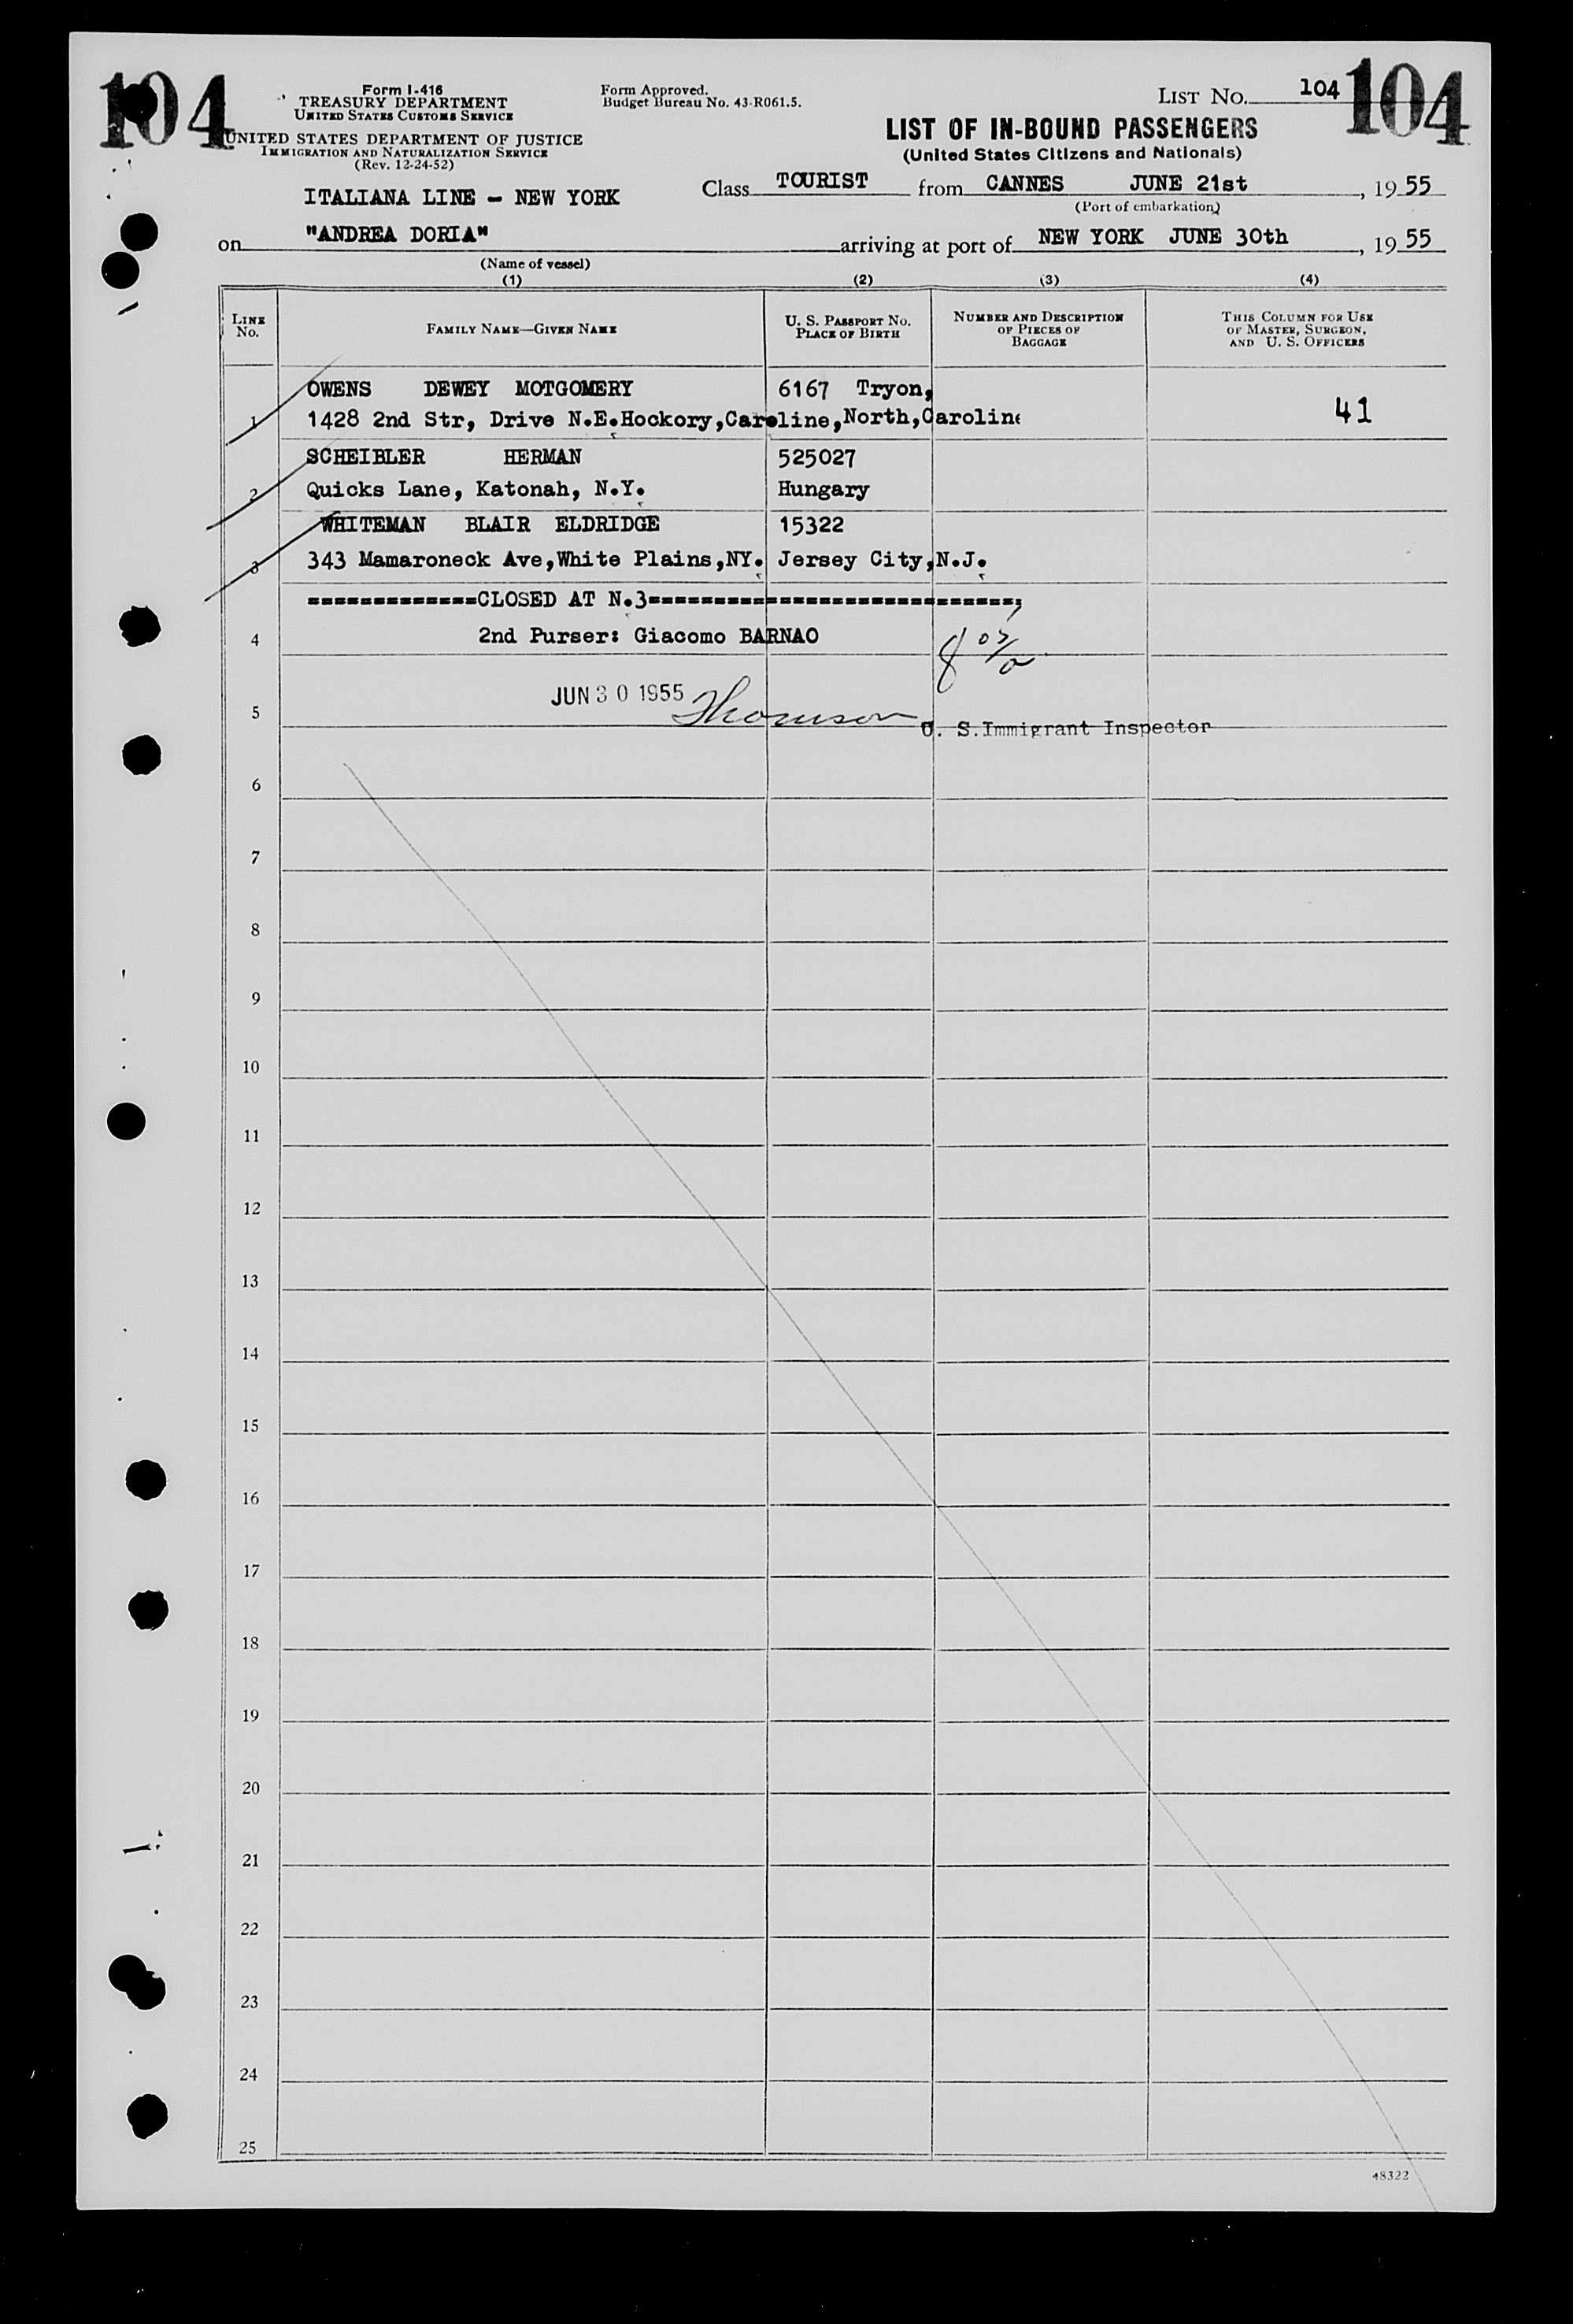 104
104
Form I-416
TREASURY DEPARTMENT
UNITED STATES CUSTOMS SERVICE
UNITED STATES DEPARTMENT OF JUSTICE
IMMIGRATION AND NATURALIZATION SERVICE
(Rev. 12-24-52)
Form Approved.
Budget Bureau No. 43-R061.5.
LIST NO. 104
LIST OF IN-BOUND PASSENGERS
(United States Citizens and Nationals)
ITALIANA LINE - NEW YORK
Class TOURIST from CANNES JUNE 21st, 1955
(Port of embarkation)
on "ANDREA DORIA" arriving at port of NEW YORK JUNE 30th, 1955
(Name of vessel)
(1) (2) (3) (4)
LINE No.
FAMILY NAME—GIVEN NAME
U. S. PASSPORT NO.
PLACE OF BIRTH
NUMBER AND DESCRIPTION
OF PIECES OF
BAGGAGE
THIS COLUMN FOR USE
OF MASTER, SURGEON,
AND U. S. OFFICERS
OWENS DEWEY MOTGOMERY 6167 Tryon,
1 1428 2nd Str, Drive N.E.Hockory,Caroline,North,Caroline 41
SCHEIBLER HERMAN 525027
2 Quicks Lane, Katonah, N.Y. Hungary
WHITEMAN BLAIR ELDRIDGE 15322
3 343 Mamaroneck Ave,White Plains,NY. Jersey City,N.J.
=============CLOSED AT N.3============================;
4 2nd Purser: Giacomo BARNAO
JUN 30 1955 Thomson
5 U. S.Immigrant Inspector
6
7
8
9
10
11
12
13
14
15
16
17
18
19
20
21
22
23
24
25
48322